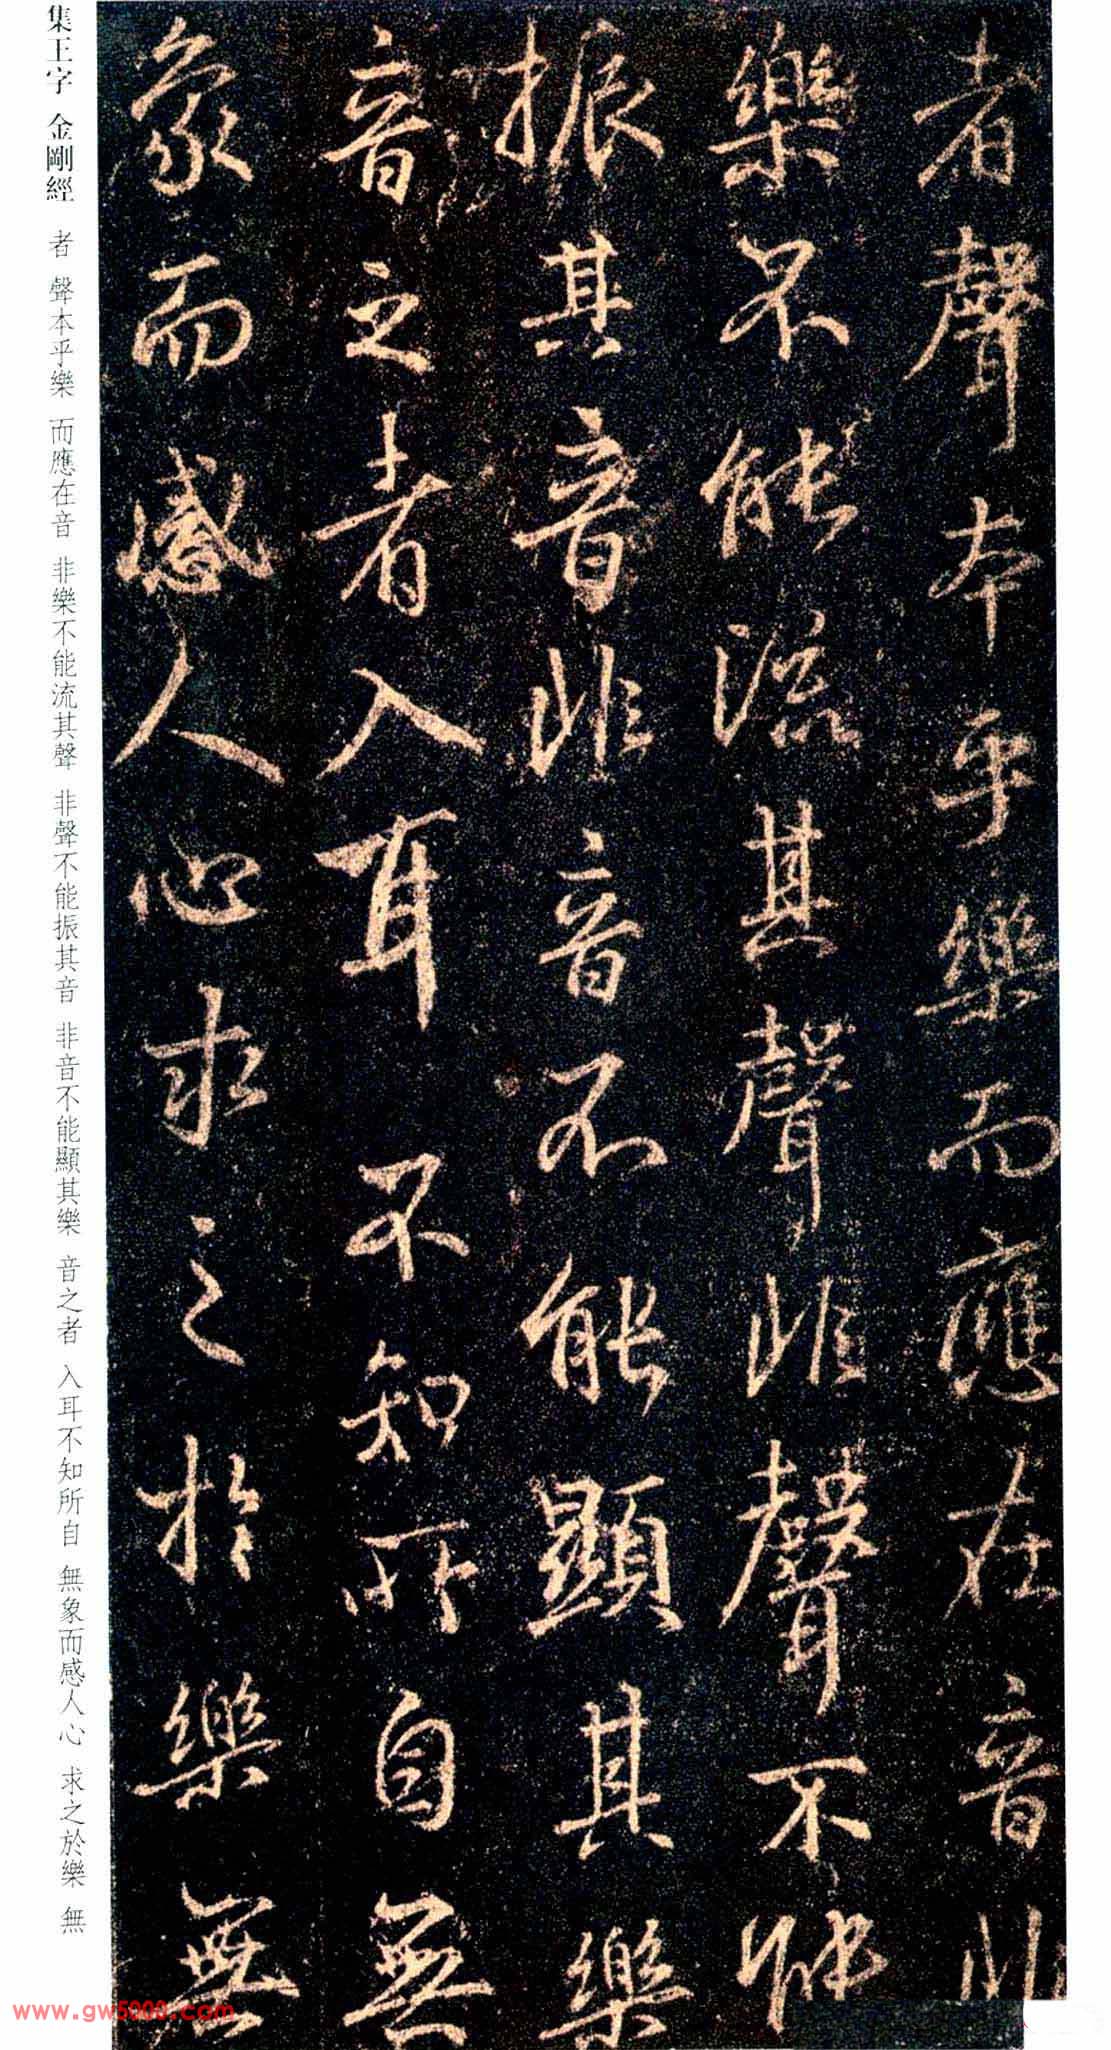 者聲本乎樂而應在音非
樂不能流其聲非聲不能
振其音非音不能顯其樂
音之者入耳不知所自無
象而感人心求之於樂無
集王字 金剛經 者 聲本乎樂 而應在音 非樂不能流其聲 非聲不能振其音 非音不能顯其樂 音之者 入耳不知所自 無象而感人心 求之於樂 無
www.gw5000.com